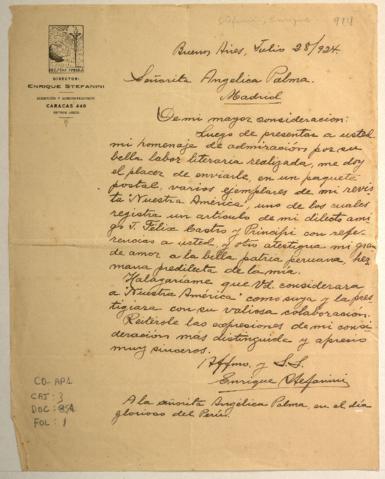 Stefanini, Enrique
914
NUESTRA AMÉRICA
DIRECTOR:
ENRIQUE STEFANINI
DIRECCIÓN Y ADMINISTRACIÓN
CARACAS 440
BUENOS AIRES
Buenos Aires, Julio 28/924.
Señorita Angélica Palma.
Madrid
De mi mayor consideración:
Luego de presentar a usted
mi homenaje de admiración por su
bella labor literaria realizada, me doy
el placer de enviarle, en un paquete
postal, varios ejemplares de mi revis
ta "Nuestra América", uno de los cuales
registra un artículo de mi dilecto ami
go J. Félix Castro y Principi con refe
rencias a usted, y otro atestigua mi gran
de amor a la bella patria peruana, her
mana predilecta de la mía.
Halagaríame que Vd. considerara
a "Nuestra América" como suya y la pres
tigiara con su valiosa colaboración.
Reitérole las expresiones de mi consi
deración más distinguida y aprecio
muy sinceros.
Affmo. y S.S.
Enrique Stefanini
A la señorita Angélica Palma, en el día
glorioso del Perú.
CO-AP1
CAJ: 3
DOC: 854
FOL: 1